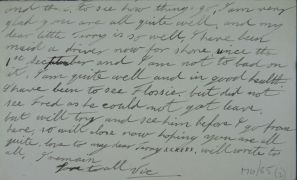 and to see how things go, I am very
glad you are all quite well, and my
dear little is so well, I have been
made a driver now for shore since the
1st december and I am not to bad on
it, I am quite well and in good health
I have been to see Flossie, but did not
see Fred as he could not get leave,
but will try and see him before I go from
here, so will close now hoping you are all
quite love to my dear xxxxxx, will write to
all, I remain
love to all Vic